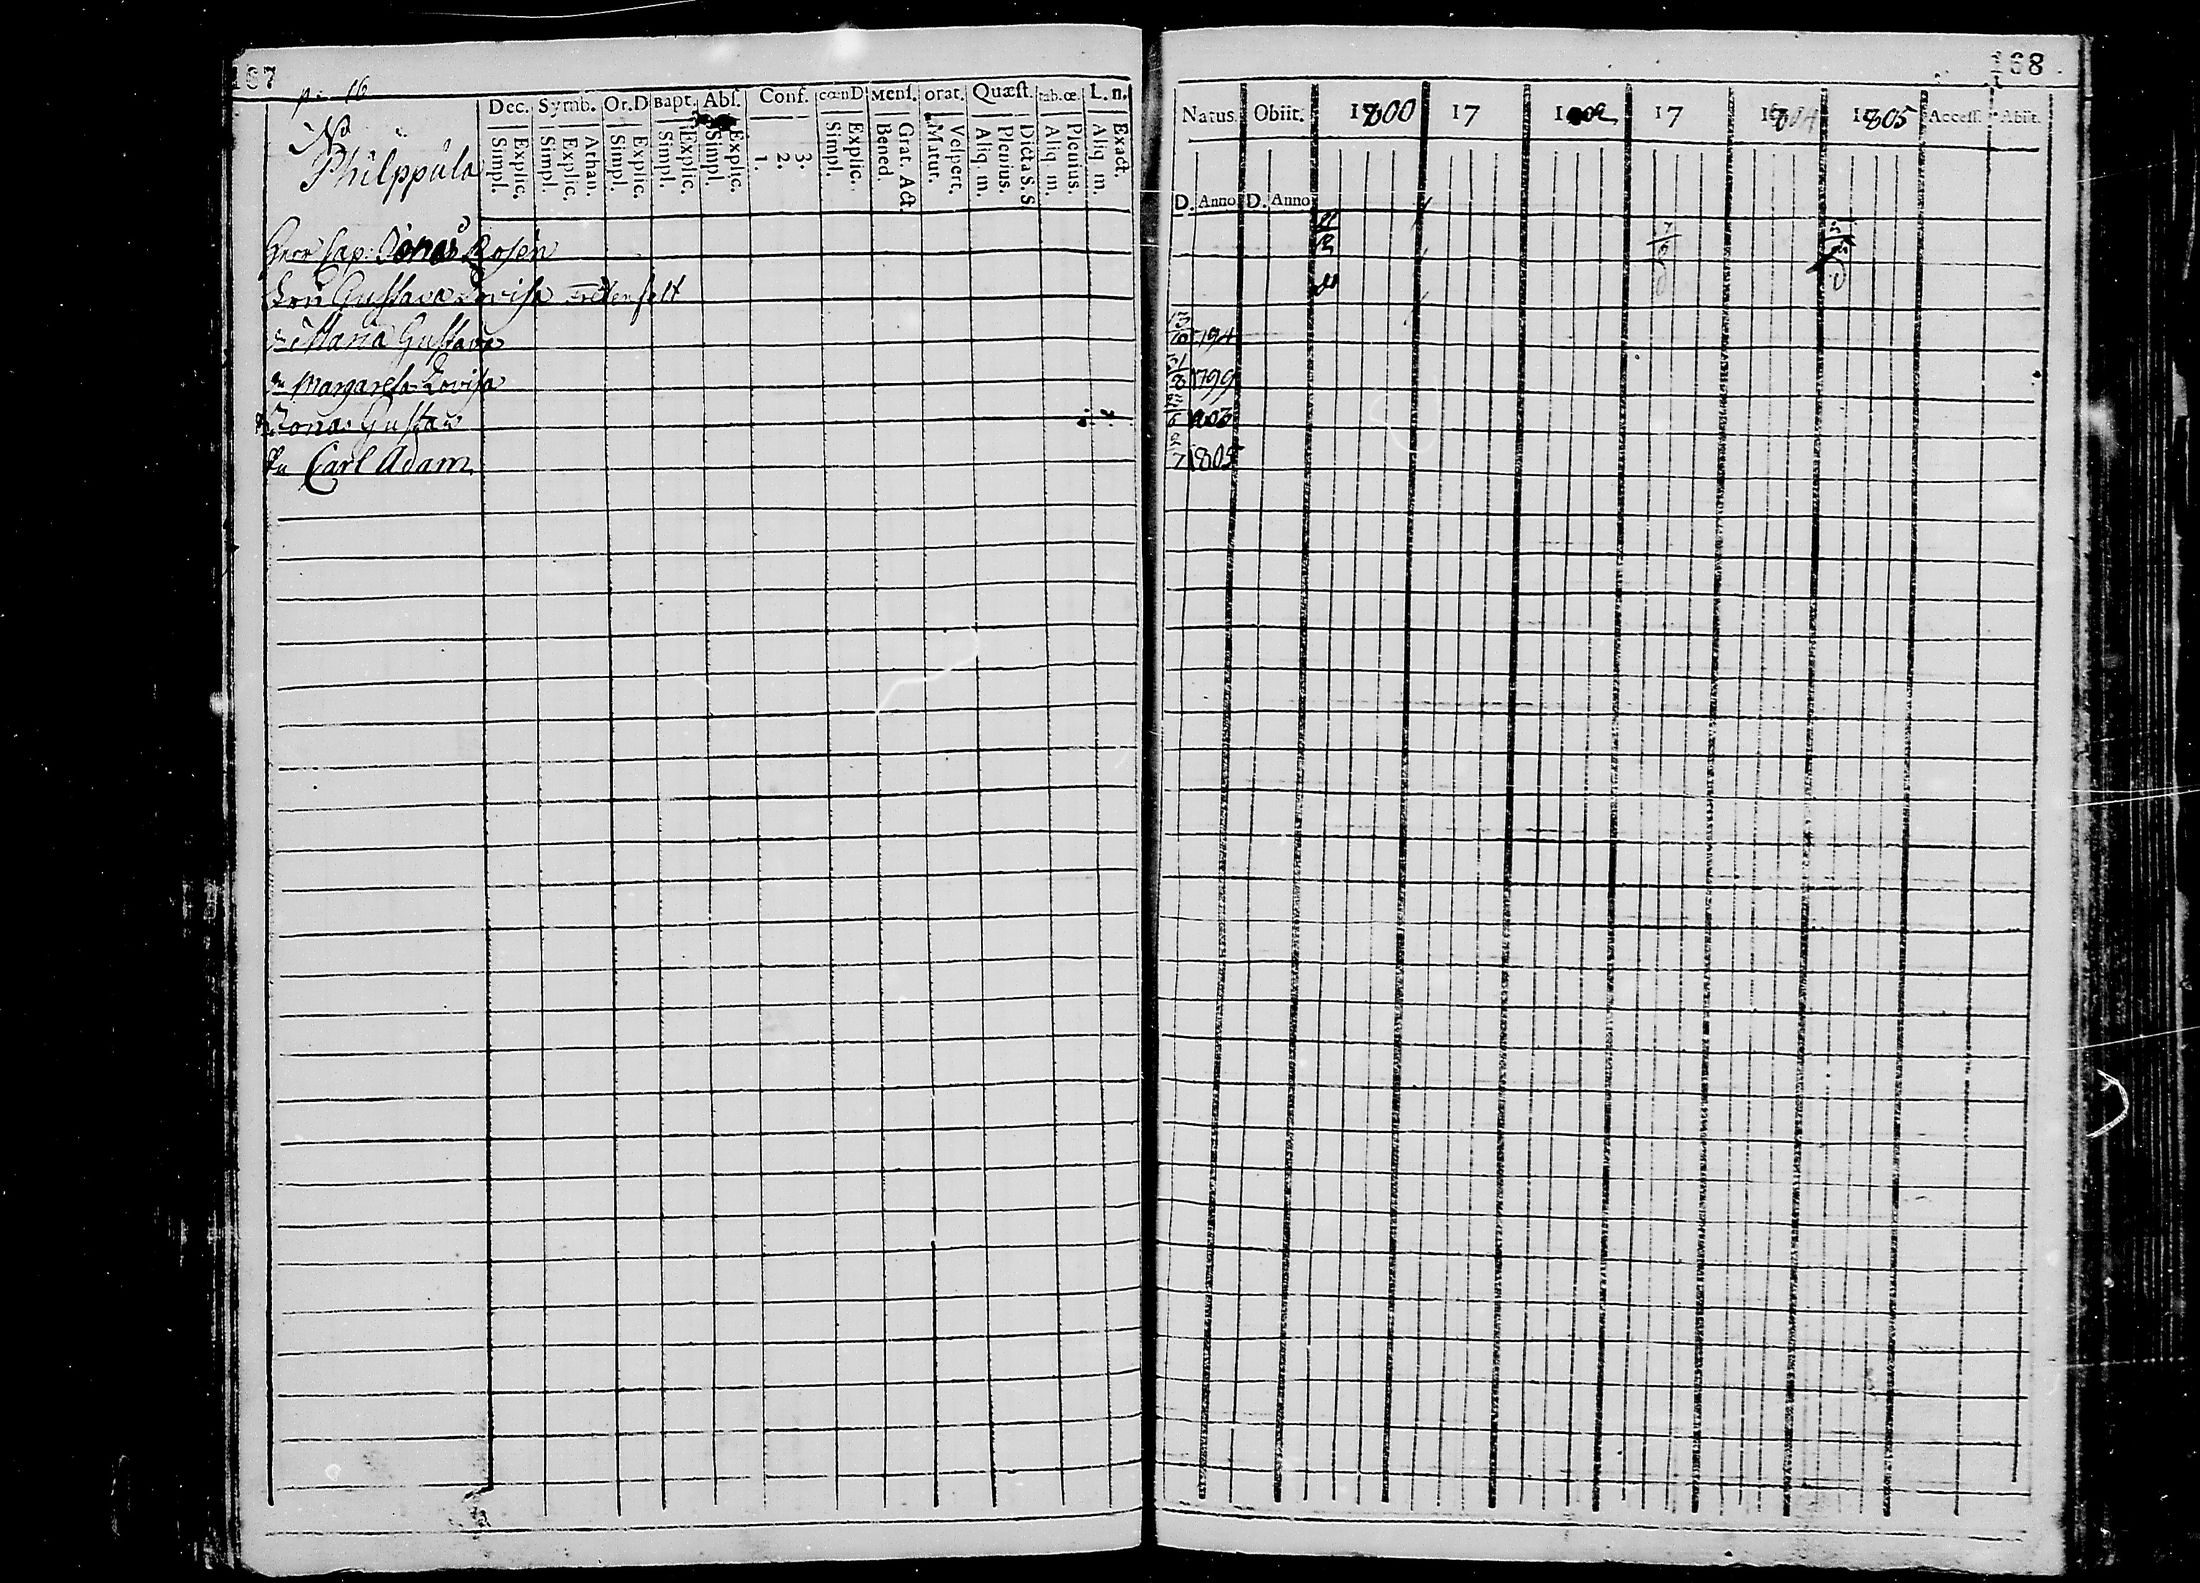 167
p. 16
No
Philppula
Dec. Symb. Or.D Bapt. Abs. Conf. cœnD Mens. orat. Quæst. tab.œ. L. n.
Simpl. Explic. Simpl. Explic. Athan. Simpl. Explic. Simpl. Explic. Simpl. Explic. 1. 2. 3. Simpl. Explic. Bened. Grat. Act. Matut. Vespert. Aliq. m. Plenius. Dicta S. S. Aliq. m. Plenius. Aliq. m. Exact.
Herr Cap: Jonas Rosén
Gustava Lovisa
Maria Gustava
Margareta Lovisa
Jonas Gustav
Carl Adam
168
Natus. Obiit. 1800 17 1802 17 1804 1805 Access. Abiit.
D. Anno D. Anno
13/10 1794
31/8 1799
1803
2/7 1805